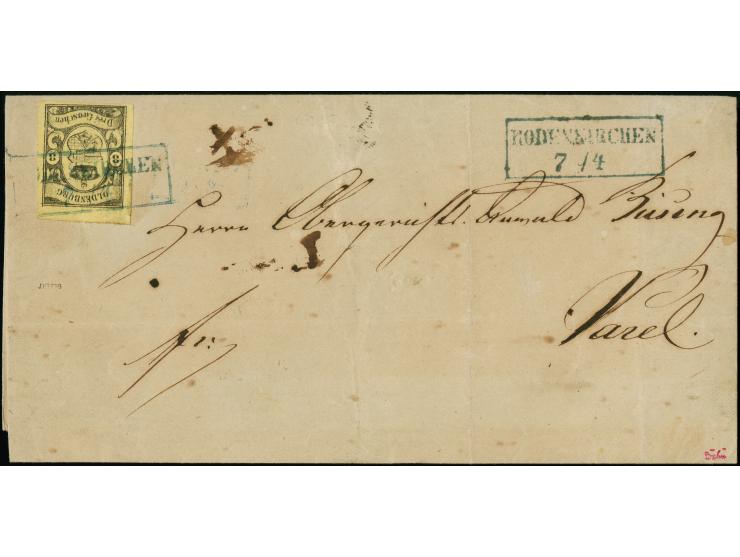 Drei Groschen
3
3
OLDENBURG
RODENKIRCHEN
7 /4
Herrn Obergerichts. Anwald Büsing
fr.
Varel.